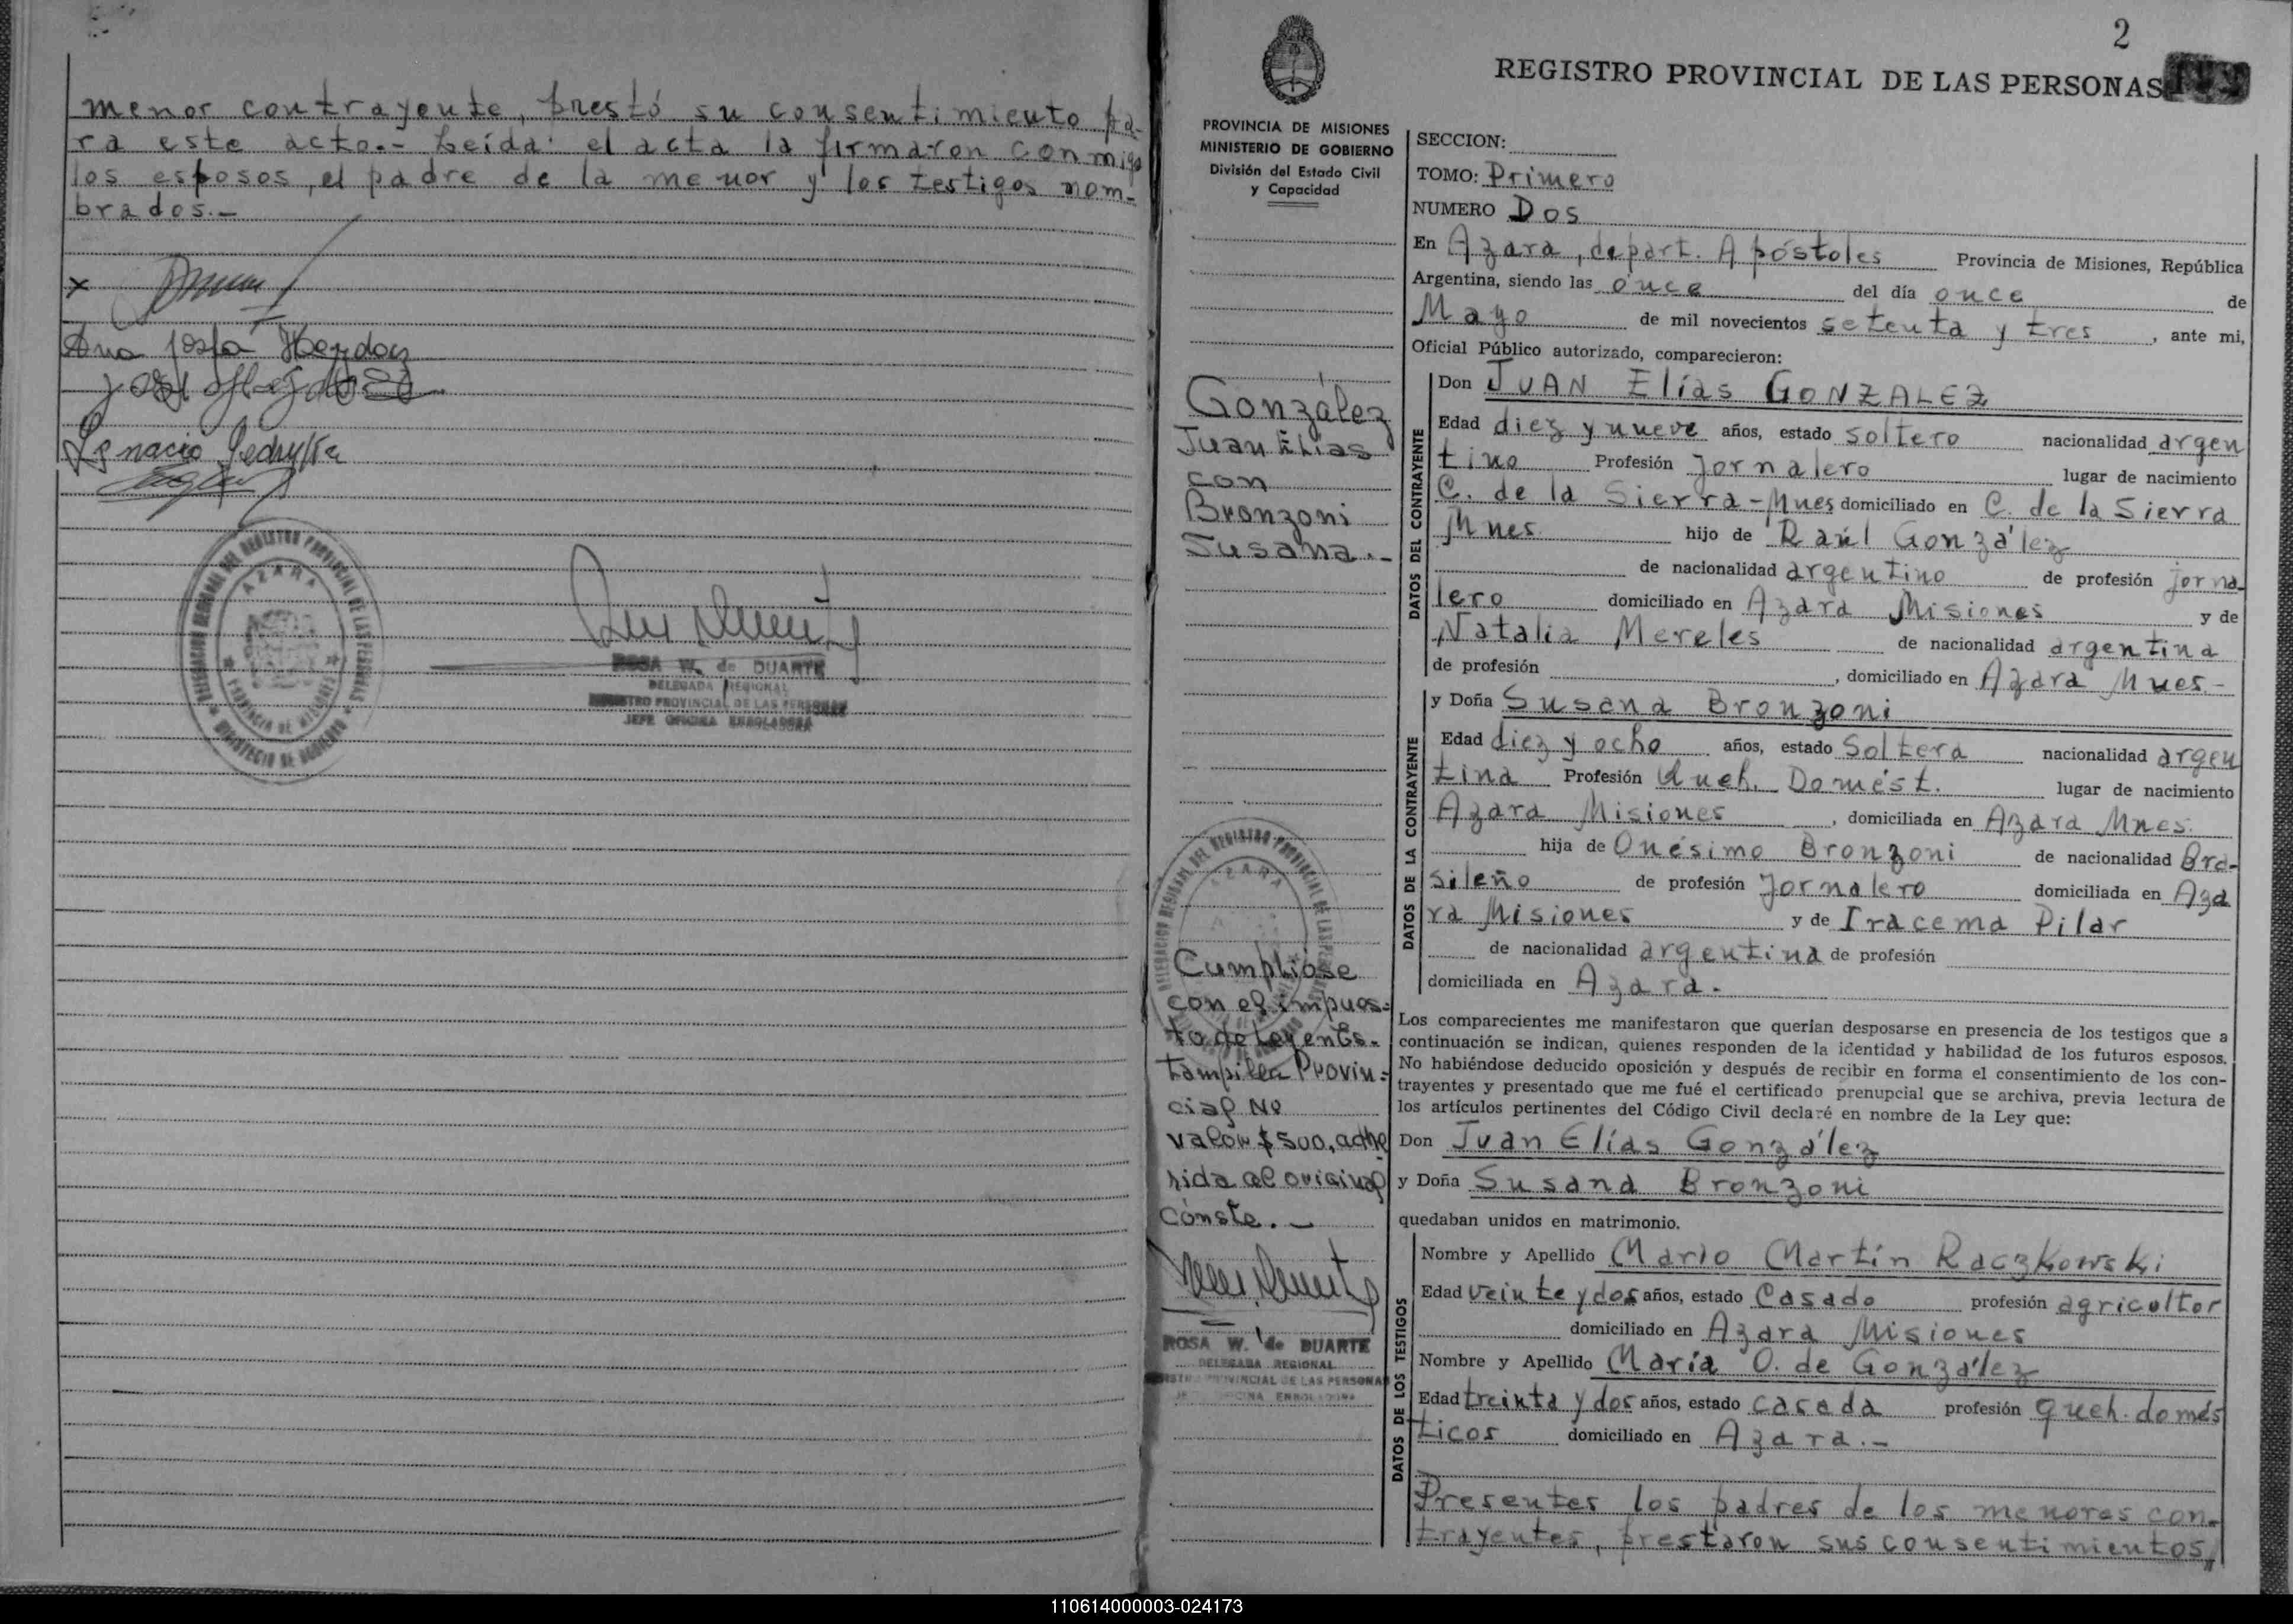 menor contrayente, prestó su consentimiento pa-
ra este acto.- Leída el acta la firmaron conmigo
los esposos, el padre de la menor y los testigos nom-
brados.-
x
Ana
José
Ignacio
DELEGACION REGIONAL DEL REGISTRO PROVINCIAL DE LAS PERSONAS
AZARA
PROVINCIA DE MISIONES
MINISTERIO DE GOBIERNO
ROSA W. de DUARTE
DELEGADA REGIONAL
REGISTRO PROVINCIAL DE LAS PERSONAS
JEFE OFICINA ENROLADORA
2
REGISTRO PROVINCIAL DE LAS PERSONAS
PROVINCIA DE MISIONES
MINISTERIO DE GOBIERNO
División del Estado Civil
y Capacidad
González
Juan Elías
con
Bronzoni
Susana.-
DELEGACION REGIONAL DEL REGISTRO PROVINCIAL DE LAS PERSONAS
AZARA
Cumplióse
con el impues-
to de Ley en Es-
tampilla Provin-
cial Nº
valor $ 500, adhe
rida al original
Conste.-
ROSA W. de DUARTE
DELEGADA REGIONAL
REGISTRO PROVINCIAL DE LAS PERSONAS
JEFE OFICINA ENROLADORA
SECCION:
TOMO: Primero
NUMERO Dos
En Azara, depart. Apóstoles Provincia de Misiones, República
Argentina, siendo las once del día once de
Mayo de mil novecientos setenta y tres, ante mi,
Oficial Público autorizado, comparecieron:
DATOS DEL CONTRAYENTE
Don JUAN Elías GONZALEZ
Edad diez y nueve años, estado soltero nacionalidad argen
tino Profesión Jornalero lugar de nacimiento
C. de la Sierra-Mnes domiciliado en C. de la Sierra
Mnes. hijo de Raúl González
de nacionalidad argentino de profesión jorna-
lero domiciliado en Azara Misiones y de
Natalia Mereles de nacionalidad argentina
de profesión , domiciliado en Azara Mnes.-
DATOS DE LA CONTRAYENTE
y Doña Susana Bronzoni
Edad diez y ocho años, estado Soltera nacionalidad argen
tina Profesión Queh. Domést. lugar de nacimiento
Azara Misiones , domiciliada en Azara Mnes.
hija de Onésimo Bronzoni de nacionalidad Bra-
sileño de profesión Jornalero domiciliada en Aza
ra Misiones y de Iracema Pilar
de nacionalidad argentina de profesión
domiciliada en Azara.
Los comparecientes me manifestaron que querían desposarse en presencia de los testigos que a
continuación se indican, quienes responden de la identidad y habilidad de los futuros esposos.
No habiéndose deducido oposición y después de recibir en forma el consentimiento de los con-
trayentes y presentado que me fué el certificado prenupcial que se archiva, previa lectura de
los artículos pertinentes del Código Civil declaré en nombre de la Ley que:
Don Juan Elías González
y Doña Susana Bronzoni
quedaban unidos en matrimonio.
DATOS DE LOS TESTIGOS
Nombre y Apellido Mario Martín Raczkowski
Edad veinte y dos años, estado Casado profesión agricultor
domiciliado en Azara Misiones
Nombre y Apellido María O. de González
Edad treinta y dos años, estado casada profesión queh. domés
ticos domiciliado en Azara.-
Presentes los padres de los menores con-
trayentes, prestaron sus consentimientos,,
110614000003-024173